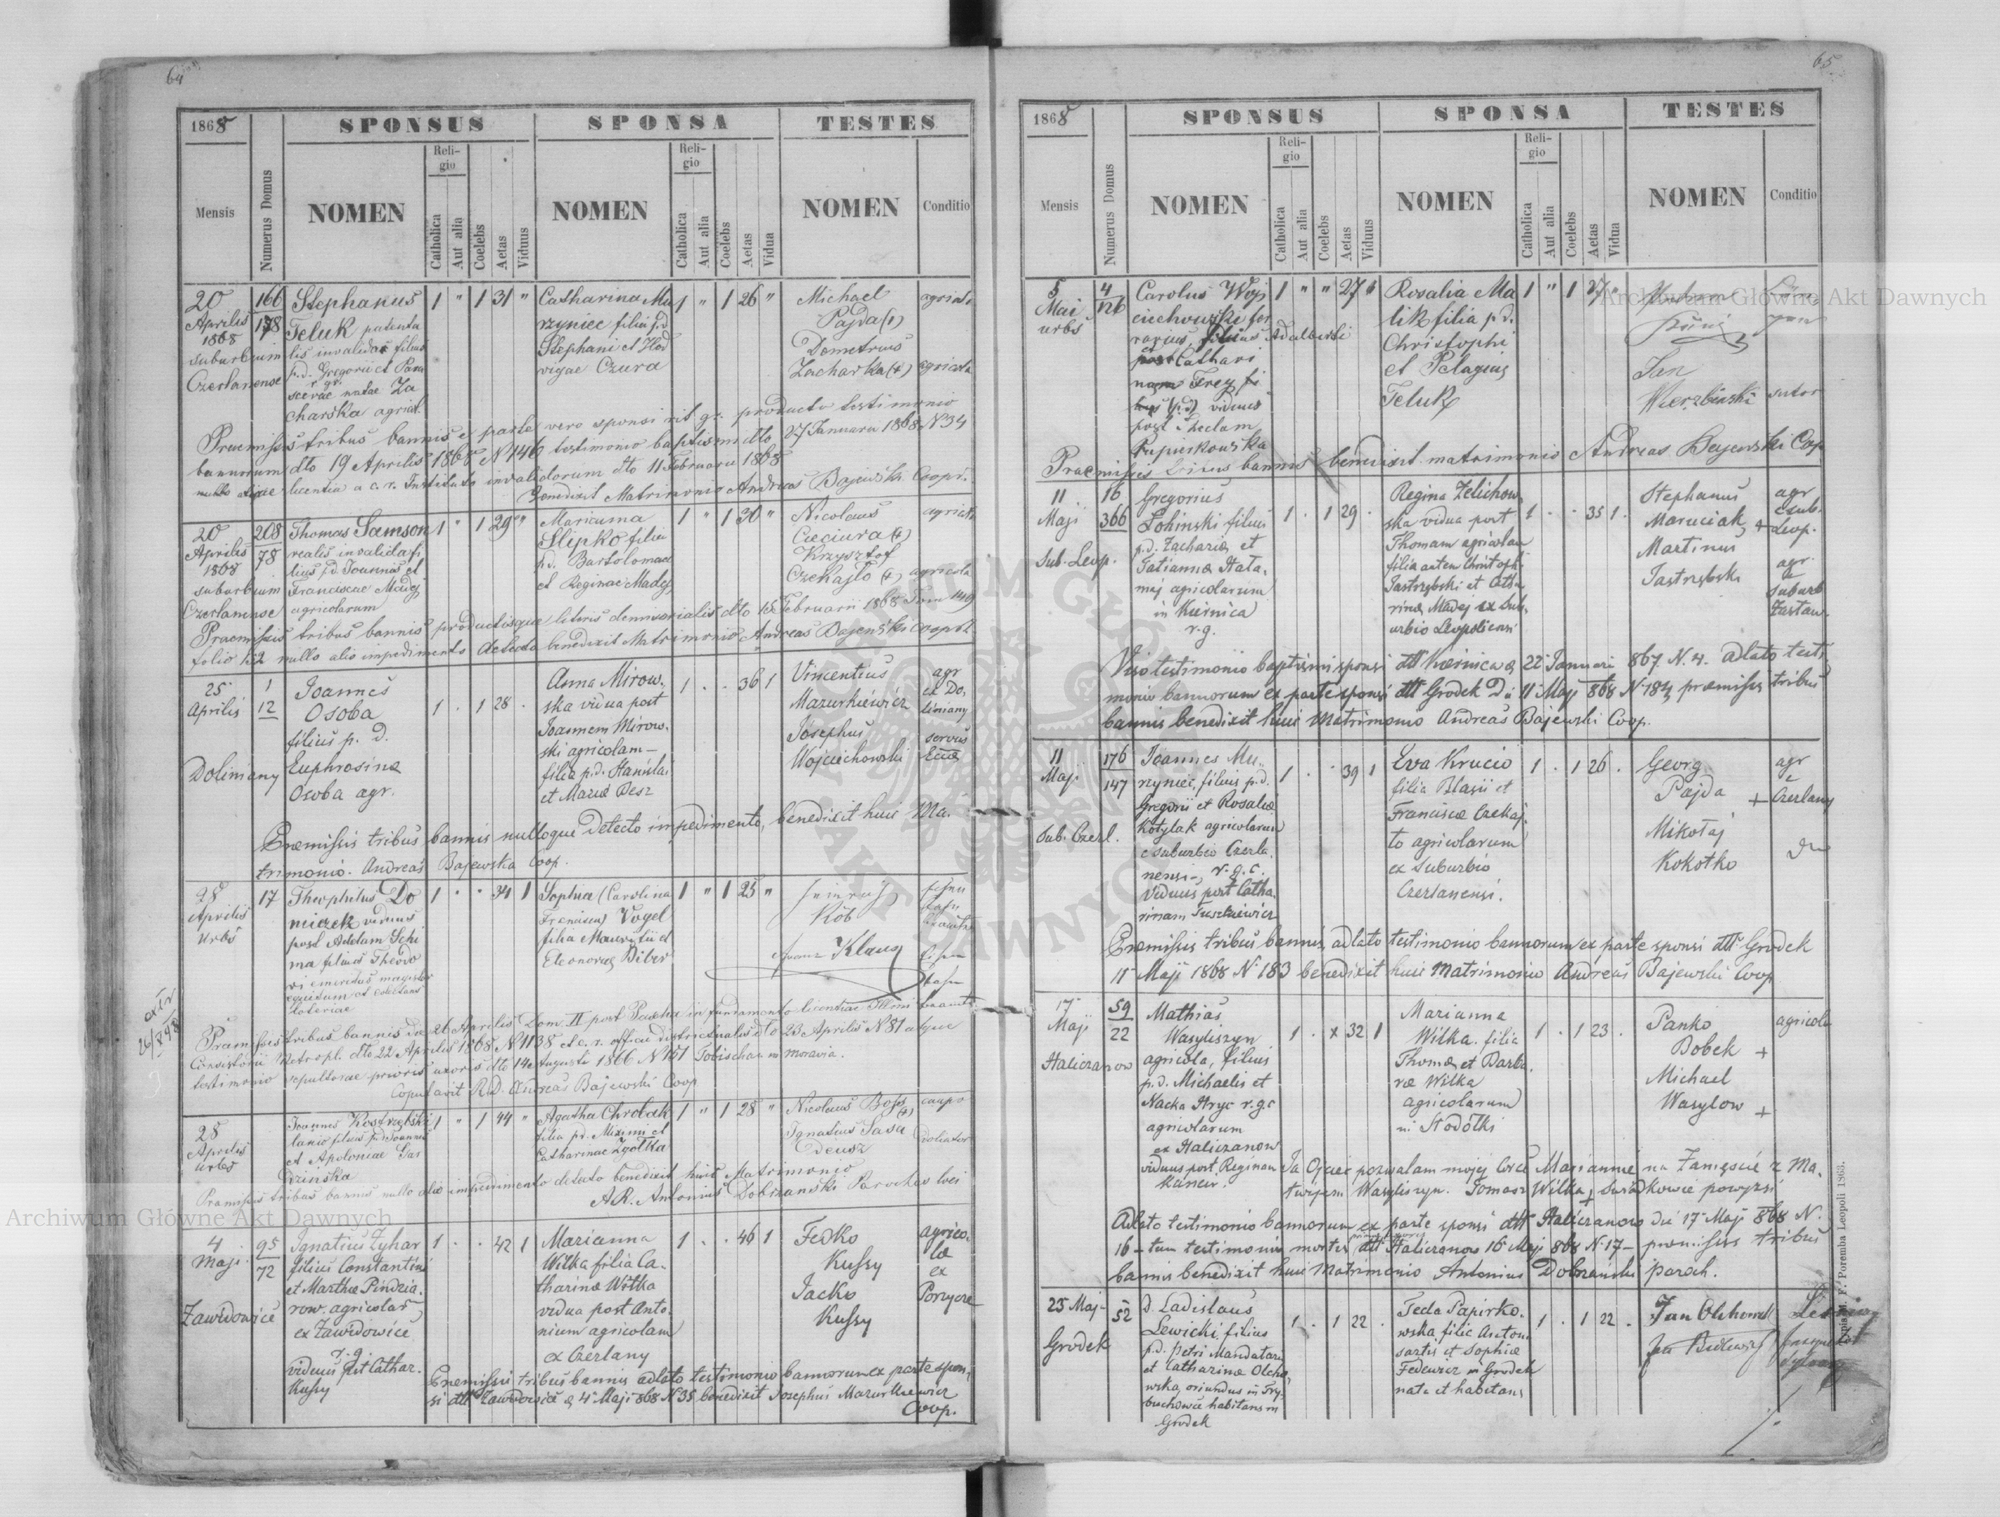 64
1868
SPONSUS
SPONSA
TESTES
Mensis
Numerus Domus
NOMEN
Religio
Catholica
Aut alia
Coelebs
Aetas
Viduus
NOMEN
Religio
Catholica
Aut alia
Coelebs
Aetas
Vidua
NOMEN
Conditio
20
Aprilis
1868
suburbium
Czerlanense
166
178
Stephanus
Teluk patenta
lis invalidus filius
p.d. Gregorii et Para
scevae natae Za
charska agricol.
1 " 1 31 "
Catharina Mu
rzyniec filia p.d.
Stephani et Hed
vigae Czura
1 " 1 26 "
Michael
Pajda (+)
Demetrius
Zacharka (+)
agricola
agricola
Praemissis tribus bannis e parte vero sponsi rit. gr. producto testimonio
bannorum dto 19 Aprilis 1868 N 146 testimonio baptismi dto 27 Januarii 1868 N 34
licentia a c. r. Instituto invalidorum dto 11 Februarii 1868
benedixit Matrimonio Andreas Bajewski Coop.
20
Aprilis
1868
suburbium
Czerlanense
208
78
Thomas Samson
realis invalida fi
lius p.d. Joannis et
Franciscae Madej
agricolarum
1 " 1 29 "
Marianna
Slepko filia
p.d. Bartolomaei
et Reginae Madej
1 " 1 30 "
Nicolaus
Cieciura (+)
Krzysztof
Czekajło (+)
agricola
agricola
Praemissis tribus bannis productisque literis dimissorialis dto 15 Februarii 1868 Tom 149
folio 152 nullo alio impedimento detecto benedixit Matrimonio Andreas Bajewski Coop.
25
Aprilis
Doliniany
1
12
Joannes
Osoba
filius p. d.
Euphrosinæ
Osoba agr.
1 . 1 28 .
Anna Mirow.
ska vidua post
Joannem Mirow.
ski agricolam –
filia p.d. Stanislai
et Mariæ Desz
1 . . 36 1
Vincentius
Mazurkiewicz
Josephus
Wojciechowski
agr
ex Do.
liniany
servus
Præmissis tribus bannis nulloque detecto impedimento, benedixit huic Ma.
trimonio. Andreas Bajewski Coop.
28
Aprilis
Urbs
17
Theophilus Do
miczek viduus
post Adelam Schi
ma filius Theodo
ri emeritus magister
equitum et collectans
loteriae
1 . . 34 1
Sophia (Carolina
Francisca) Vogel
filia Mauritii et
Eleonorae Biber
1 " 1 25 "
Köb
Franz Klaus
Praemissis tribus bannis die 26 Aprilis Dom. II post Pascha in fundamento licentiae Illmi
Consistorii Metropl. dto 22 Aprilis 1868 N 1138 et c. r. officii districtualis dto 23 Aprilis N 81
testimonio sepulturae prioris uxoris dto 14 Augusti 1866 N 151 Tobischau in Moravia.
Copulavit R.D. Andreas Bajewski Coop
28
Aprilis
Urbs
Joannes Kostrzębski
lanio filius p.d. Joannis
et Apoloniae Gar
dzińska
1 " 1 44 "
Agatha Chrobak
filia p.d. Maximi et
Catharinae Zgółka
1 " 1 28 "
Nicolaus Boss (+)
Ignatius Sasa
Deusz
caupo
doliator
Praemissis tribus bannis nullo alio impedimento detecto benedixit huic Matrimonio
A.R. Antonius Dobrzański Parochus loci
4
Maji
Zawidowice
95
72
Ignatius Zyhar
filius Constantini
et Marthæ Pindzia.
row. agricolar
ex Zawidowice
r. g.
viduus post Cathar.
Kussy
1 . . 42 1
Marianna
Witka filia Ca.
tharinæ Witka
vidua post Anto.
nium agricolam
ex Czerlany
1 . . 46 1
Fedko
Kussy
Jacko
Kussy
agrico.
læ
ex
Porzyce
Præmissis tribus bannis adlato testimonio bannorum ex parte spon.
si dtto Zawidowice d. 4 Maji 868 N 35 benedixit Josephus Mazurkiewicz
Coop.
65
1868
SPONSUS
SPONSA
TESTES
Mensis
Numerus Domus
NOMEN
Religio
Catholica
Aut alia
Coelebs
Aetas
Viduus
NOMEN
Religio
Catholica
Aut alia
Coelebs
Aetas
Vidua
NOMEN
Conditio
5
Mai
urbs
4
126
Carolus Woj
ciechowski fer
rarius, filius Adalberti
et Cathari
nam Frey fi
(p.d) viduus
post Theclam
Papierkowska
1 " " 27 1
Rosalia Ma
lik filia p.d.
Christophi
et Pelagiae
Teluk
1 " 1 27 "
Jan
Wierzbinski
sutor
Praemissis trinis bannis benedixit matrimonio Andreas Bajewski Coop
11
Maji
Sub. Leop.
16
366
Gregorius
Łohinski filius
p.d. Zachariæ et
Tatianæ Hala.
mij agricolarum
in Kiernica
r.g.
1 . 1 29 .
Regina Zelichow.
ska vidua post
Thomam agricolam
filia autem Christoph.
Jastrzębski et Catha.
rinæ Madej ex Sub.
urbio Leopoliensi
1 . . 35 1.
Stephanus
Maruciak +
Martinus
Jastrzębski
agr
e sub.
Leop.
agr.
e
suburb
Zastaw.
Viso testimonio baptismi sponsi dtto Kiernica d 22 Januari 867 N. 4. adlato testi
monio bannorum ex parte sponsi dtto Grodek d. 11 Maji 868 N 184 præmissis tribus
bannis benedixit huic Matrimonio Andreas Bajewski Coop.
11
Maji
Sub. Czerl.
176
147
Joannes Mu.
rzyniec, filius p.d.
Gregorii et Rosaliæ
Kotylak agricolarum
e suburbio Czerla.
nensi, r.g.c.
viduus post Catha.
rinam Tuszkiewicz
1 . . 39 1
Eva Krucio
filia Blasii et
Franciscæ Czekaj.
ło agricolarum
ex suburbio
Czerlanensi.
1 . 1 26 .
Georg
Pajda +
Mikołaj
Kokotko
agr
e
Czerlany
dtto
Præmissis tribus bannis, adlato testimonio bannorum ex parte sponsi dtto Grodek
11 Maji 1868 N 183 benedixit huic Matrimonio Andreas Bajewski Coop
17
Maji
Haliczanow
59
22
Mathias
Wasyliszyn
agricola, filius
p.d. Michaelis et
Nacka Hryc r.g.c
agricolarum
ex Haliczanow
viduus post Reginam
1 . x 32 1
Marianna
Wilka. filia
Thomæ et Barba.
ræ Wilka
agricolarum
in Stodółki
1 . 1 23 .
Panko
Bobek +
Michael
Wasylow +
agricola
Ja Ojciec pozwalam mojej Córce Mariannie na Zamęście z Ma.
twijem Wasyliszyn. Tomasz Wilka + Swiadkowie powyzsi
Adlato testimonio bannorum ex parte sponsi dtto Haliczanow die 17 Maji 868 N.
16 – tum testimonio mortis dtto Haliczanow 16 Maji 868 N. 17 – præmissis tribus
bannis benedixit huic Matrimonio Antonius Dobrzański paroch.
25 Maj-
Grodek
52
D. Ladislaus
Lewicki, filius
p.d. Petri Mandatari
et Catharinæ Olcho.
wska, oriundus in Try.
buchowce habitans in
Grodek
1 . 1 22 .
Tecla Papirko.
wska filia Anton.
sartis et Sophiæ
Fedewicz in Grodek
nata et habitans
1 . 1 22 .
Jan
Poremba Leopoli 1863.
Archiwum Główne Akt Dawnych
Archiwum Główne Akt Dawnych